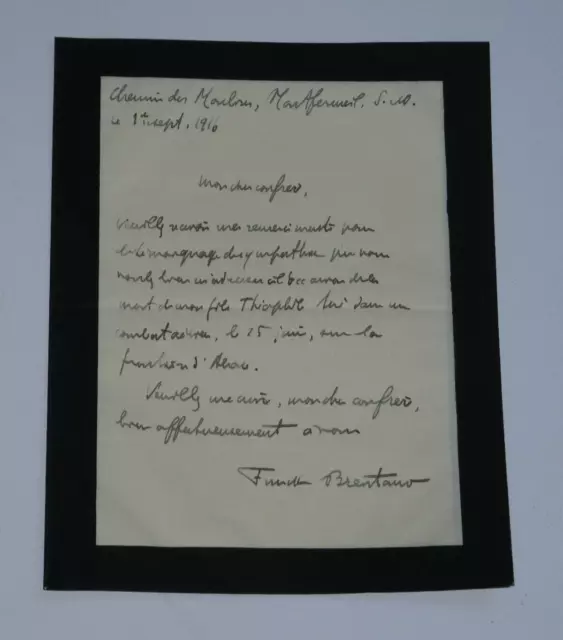 Chemin des Moulins, Montfermeil. S.-&-O.
le 1er sept. 1916
Mon cher confrère,
Veuillez recevoir mes remerciements pour
le témoignage de sympathie que vous
voulez bien m'adresser à l'occasion de la
mort de mon fils Théophile tué dans un
combat aérien, le 25 juin, sur la
frontière d'Alsace.
Veuillez me croire, mon cher confrère,
bien affectueusement à vous
Funck Brentano